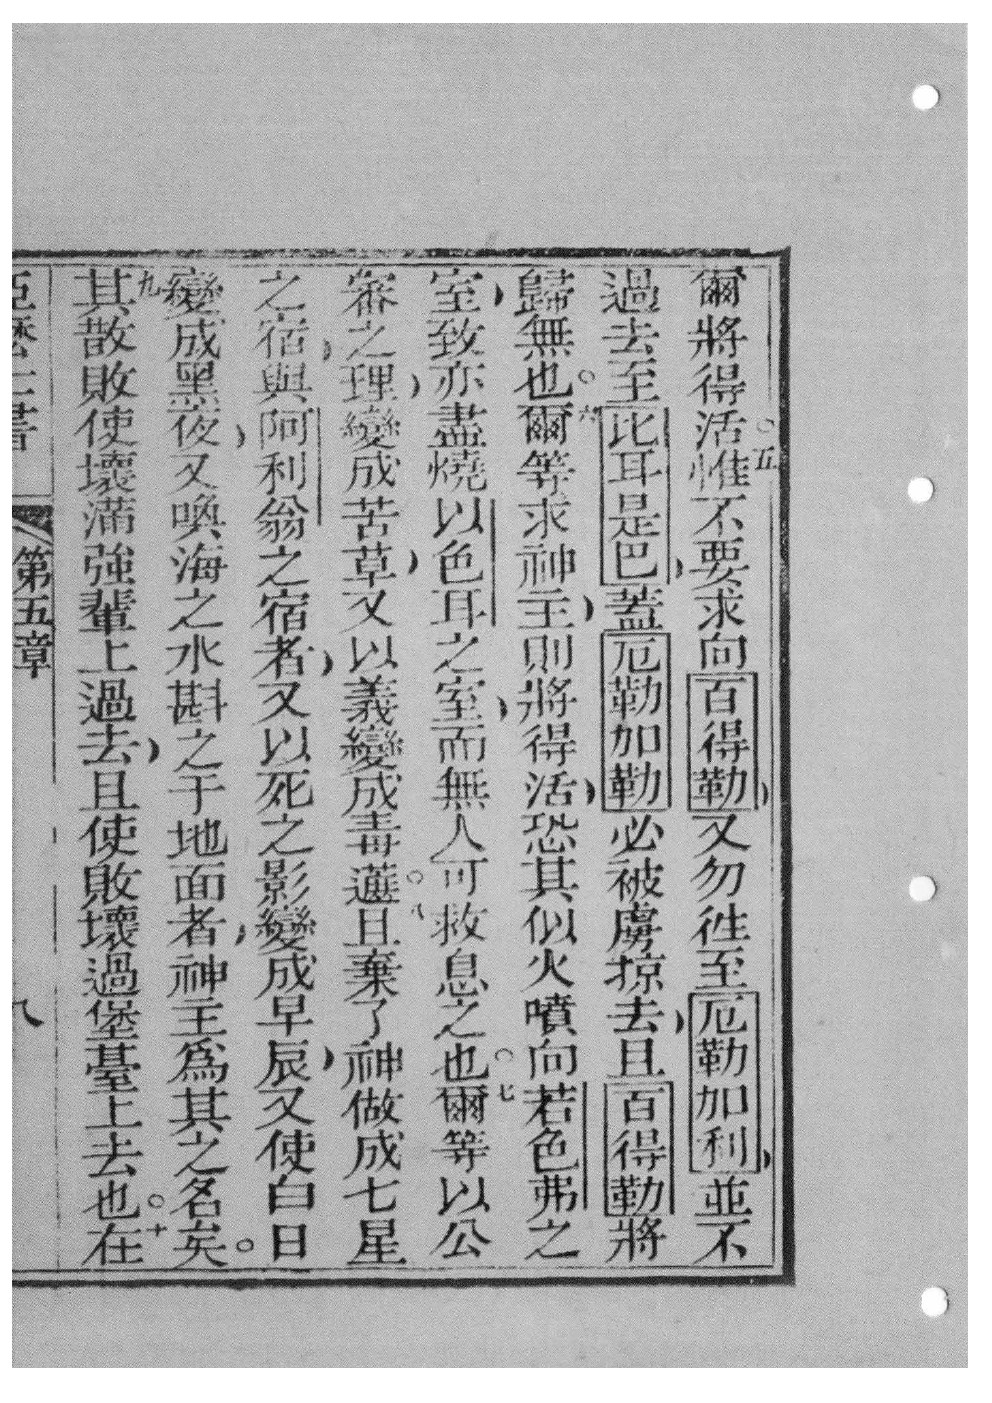 爾將得活。五惟不要求向百得勒又勿徃至厄勒加利並不
過去至比耳是巴蓋厄勒加勒必被虜掠去且百得勒將
歸無也。六爾等求神主則將得活恐其似火噴向若色弗之
室致亦盡燒以色耳之室而無人可救息之也。七爾等以公
審之理變成苦草又以義變成毒薳。八且棄了神做成七星
之宿與阿利翁之宿者又以死之影變成早辰又使白日
變成黑夜又喚海之水斟之于地面者神主爲其之名矣。
九其散敗使壞滿強輩上過去且使敗壞過堡臺上去也。十在
第五章
八